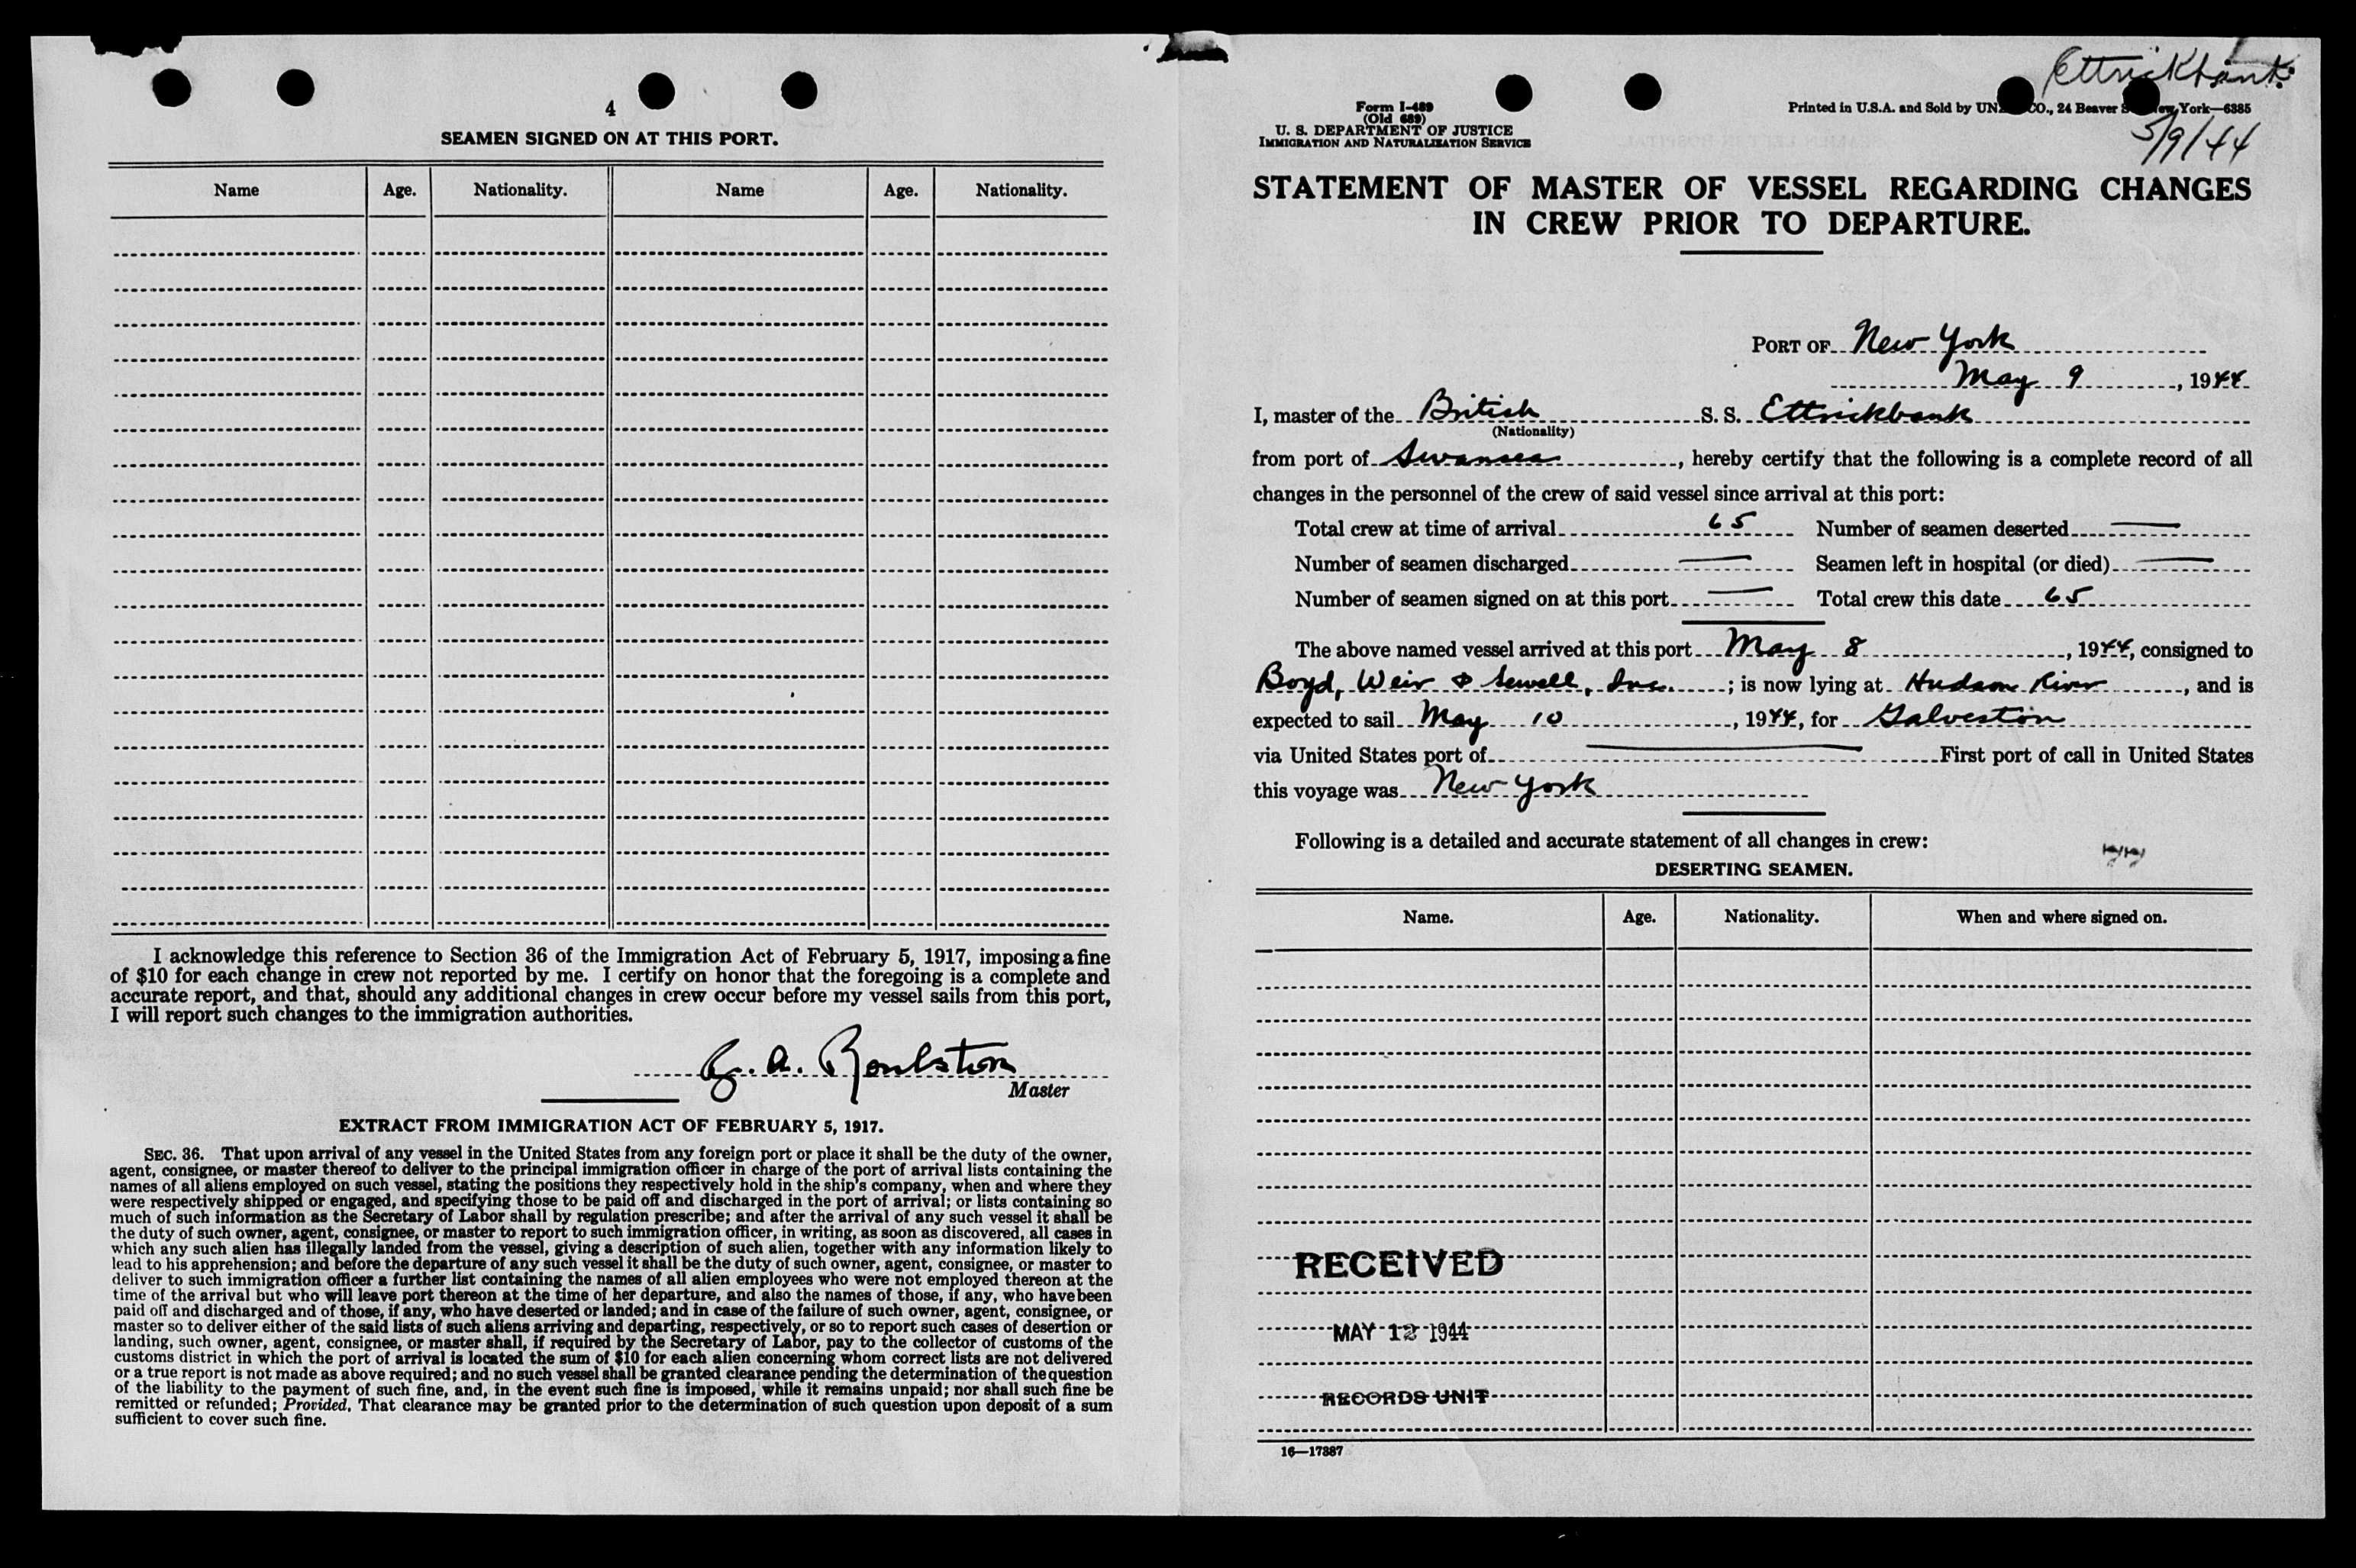 4
SEAMEN SIGNED ON AT THIS PORT.
Name Age. Nationality. Name Age. Nationality.
I acknowledge this reference to Section 36 of the Immigration Act of February 5, 1917, imposing a fine
of $10 for each change in crew not reported by me. I certify on honor that the foregoing is a complete and
accurate report, and that, should any additional changes in crew occur before my vessel sails from this port,
I will report such changes to the immigration authorities.
A. Roulston
Master
EXTRACT FROM IMMIGRATION ACT OF FEBRUARY 5, 1917.
SEC. 36. That upon arrival of any vessel in the United States from any foreign port or place it shall be the duty of the owner,
agent, consignee, or master thereof to deliver to the principal immigration officer in charge of the port of arrival lists containing the
names of all aliens employed on such vessel, stating the positions they respectively hold in the ship's company, when and where they
were respectively shipped or engaged, and specifying those to be paid off and discharged in the port of arrival; or lists containing so
much of such information as the Secretary of Labor shall by regulation prescribe; and after the arrival of any such vessel it shall be
the duty of such owner, agent, consignee, or master to report to such immigration officer, in writing, as soon as discovered, all cases in
which any such alien has illegally landed from the vessel, giving a description of such alien, together with any information likely to
lead to his apprehension; and before the departure of any such vessel it shall be the duty of such owner, agent, consignee, or master to
deliver to such immigration officer a further list containing the names of all alien employees who were not employed thereon at the
time of the arrival but who will leave port thereon at the time of her departure, and also the names of those, if any, who have been
paid off and discharged and of those, if any, who have deserted or landed; and in case of the failure of such owner, agent, consignee, or
master so to deliver either of the said lists of such aliens arriving and departing, respectively, or so to report such cases of desertion or
landing, such owner, agent, consignee, or master shall, if required by the Secretary of Labor, pay to the collector of customs of the
customs district in which the port of arrival is located the sum of $10 for each alien concerning whom correct lists are not delivered
or a true report is not made as above required; and no such vessel shall be granted clearance pending the determination of the question
of the liability to the payment of such fine, and, in the event such fine is imposed, while it remains unpaid; nor shall such fine be
remitted or refunded; Provided, That clearance may be granted prior to the determination of such question upon deposit of a sum
sufficient to cover such fine.
Ettrickbank
5/9/44
Form I-489
(Old 689)
U. S. DEPARTMENT OF JUSTICE
IMMIGRATION AND NATURALIZATION SERVICE
Printed in U.S.A. and Sold by CO., 24 Beaver York—6385
STATEMENT OF MASTER OF VESSEL REGARDING CHANGES
IN CREW PRIOR TO DEPARTURE.
PORT OF New York
May 9, 1944
I, master of the British S. S. Ettrickbank
(Nationality)
from port of Swansea, hereby certify that the following is a complete record of all
changes in the personnel of the crew of said vessel since arrival at this port:
Total crew at time of arrival 65 Number of seamen deserted —
Number of seamen discharged — Seamen left in hospital (or died) —
Number of seamen signed on at this port — Total crew this date 65
The above named vessel arrived at this port May 8, 1944, consigned to
Boyd, Weir & Sewell, Inc.; is now lying at Hudson River, and is
expected to sail May 10, 1944, for Galveston
via United States port of — First port of call in United States
this voyage was New York
Following is a detailed and accurate statement of all changes in crew:
DESERTING SEAMEN.
Name. Age. Nationality. When and where signed on.
RECEIVED
MAY 12 1944
RECORDS UNIT
16—17387